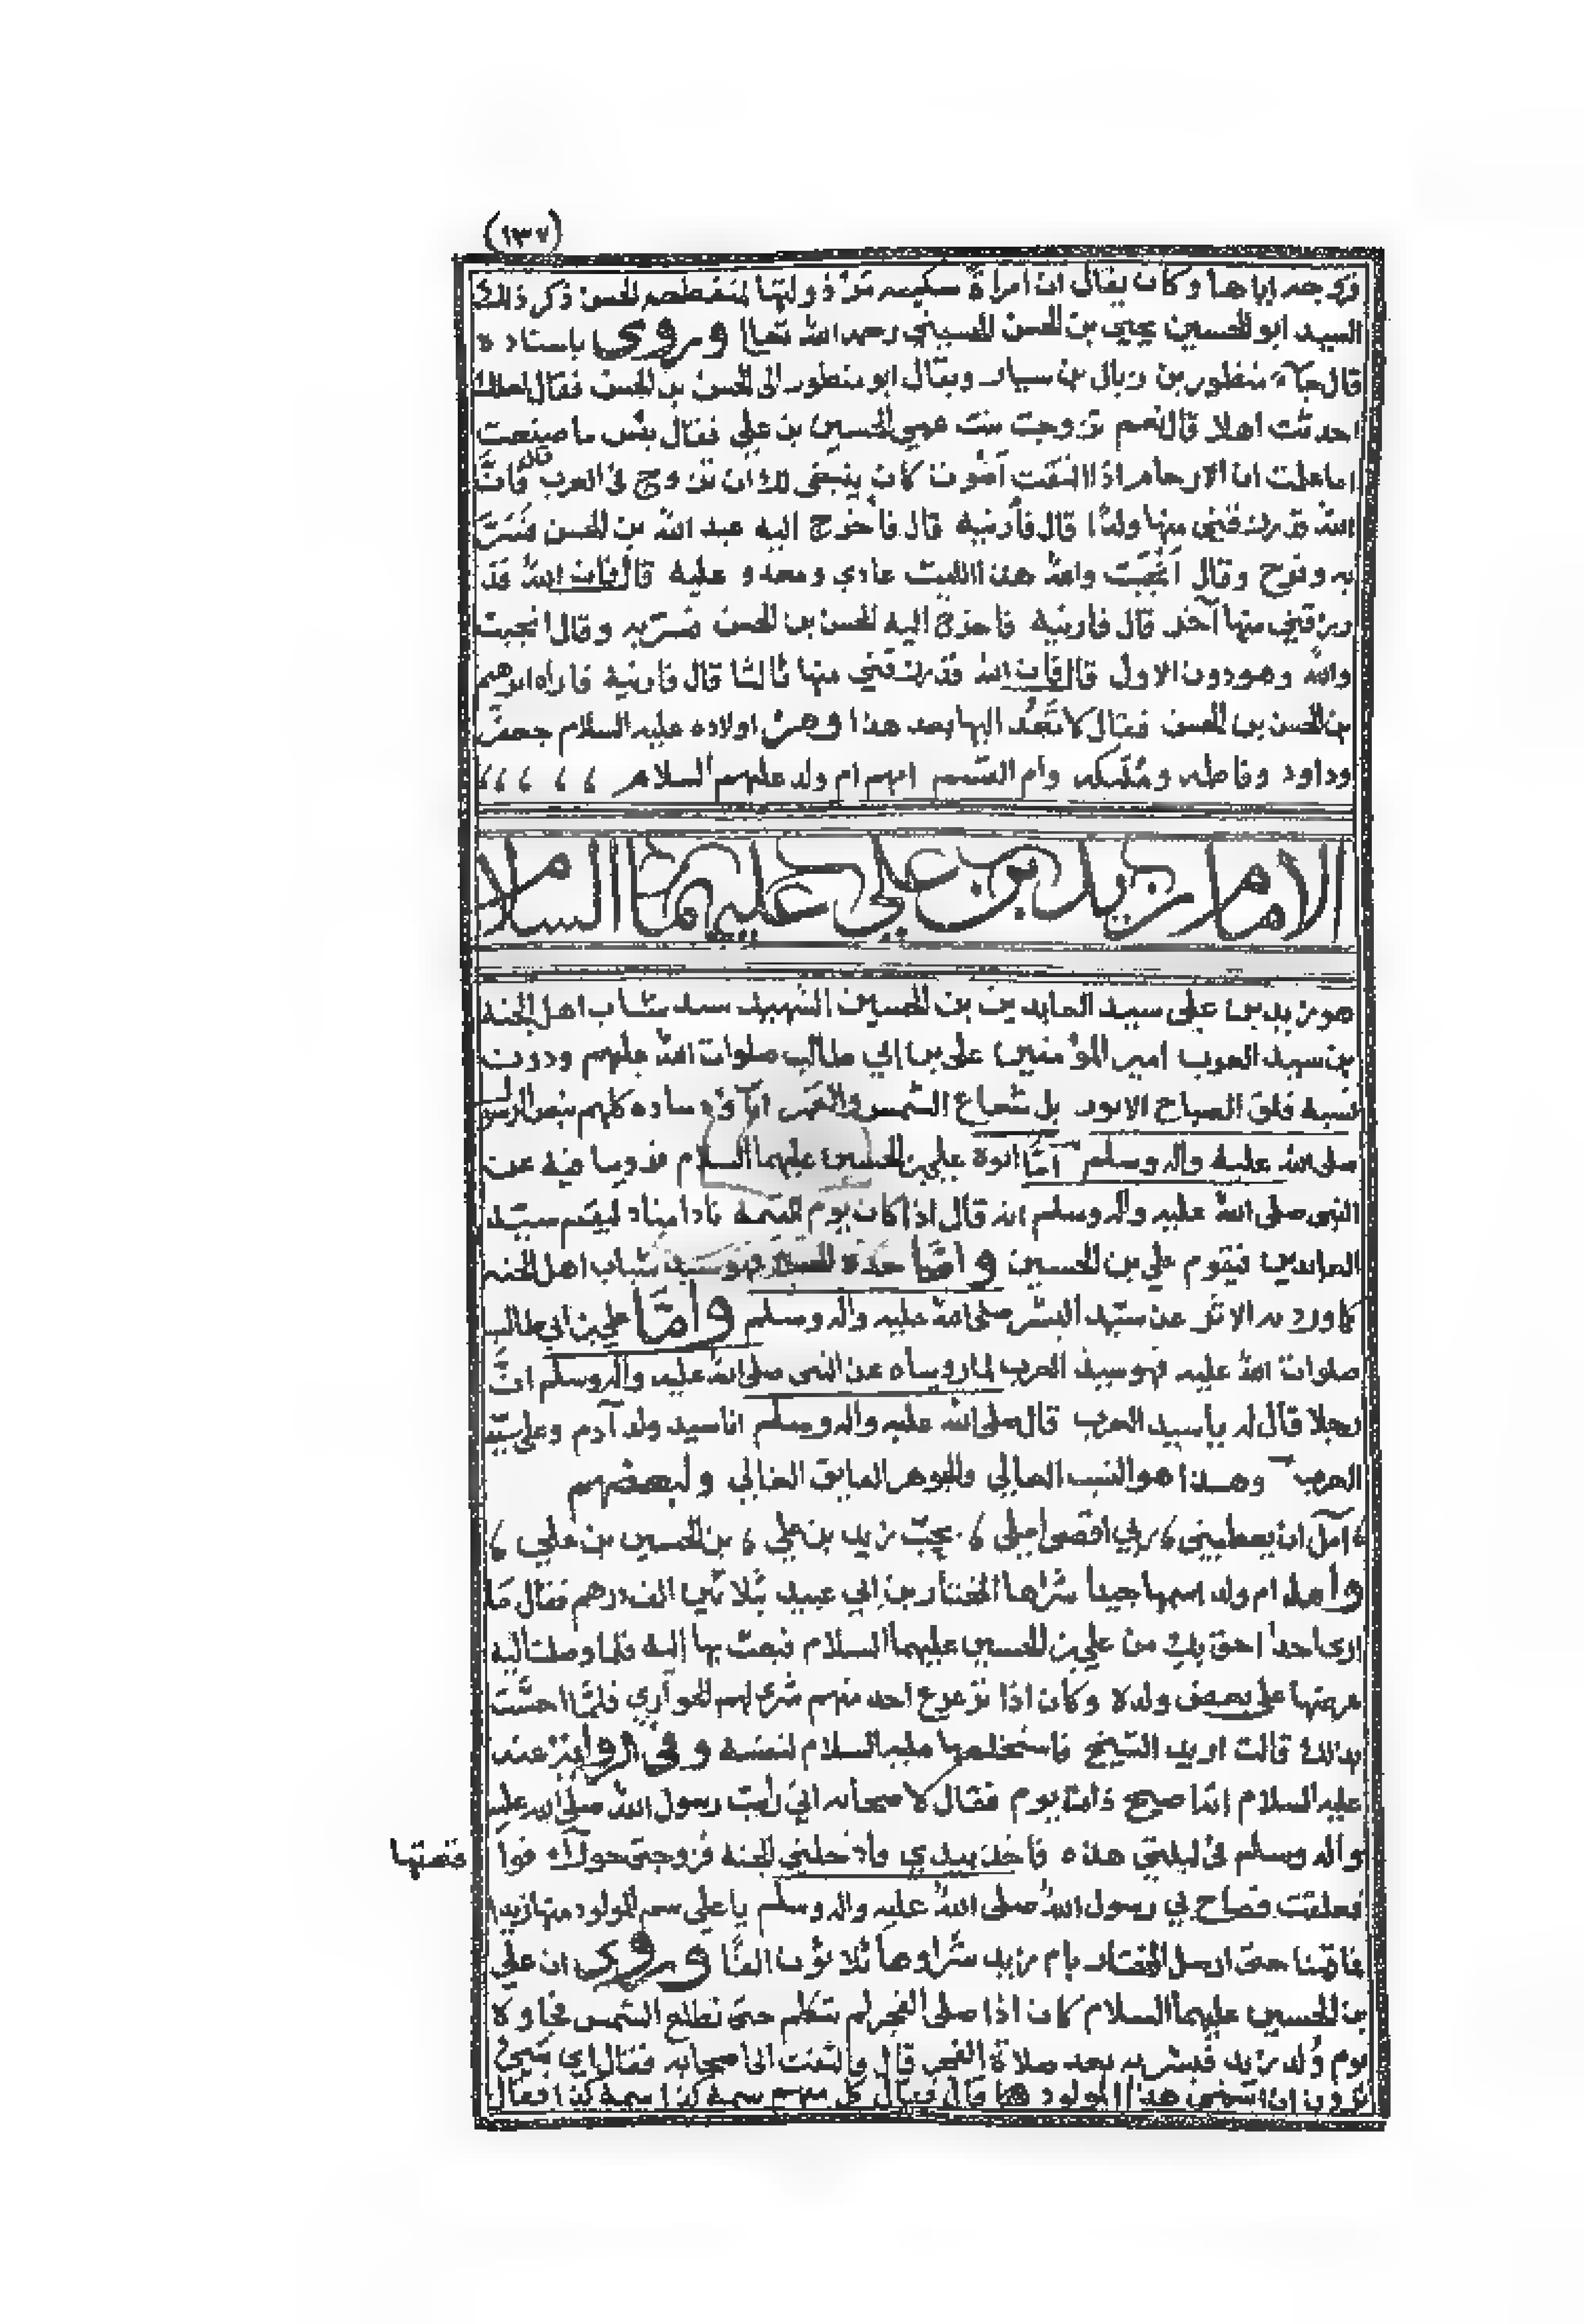 (١٣٧)
فزوجه اياها وكان يقال ان امراة سكينه مردودتها لمنقطعه الحسن ذكر ذلك
السيد ابو الحسين يحيى بن الحسن الحسيني رحمه الله تعالى وروى باسناده
قال جاء منظور بن زبان بن سيار ويقال ابو منظور الى الحسن بن الحسن فقال لعلك
احدثت اهلا قال نعم تزوجت بنت عمي الحسين بن علي فقال بئس ما صنعت
اما علمت ان الارحام اذا التقت اضوت كان ينبغي لك ان تتزوج في العرب قال فان
الله قد رزقني منها ولدًا قال فأرنيه قال فأخرج اليه عبد الله بن الحسن فسرّ
به وفرح وقال انجبت والله هذا الليث عادي ومعدو عليه قال فان الله قد
رزقني منها آخر قال فارنيه فاخرج اليه الحسن بن الحسن فسرّ به وقال انجبت
والله وهو دون الاول قال فان الله قد رزقني منها ثالثا قال فارنيه فاراه ابرهيم
بن الحسن بن الحسن فقال لا تعُد اليها بعد هذا ومن اولاده عليه السلام جعفر
وداود وفاطمه ومليكه وام القسم امهم ام ولد عليهم السلام
الامام زيد بن علي عليهما السلام
هو زيد بن علي سيد العابدين بن الحسين الشهيد سيد شباب اهل الجنه
بن سيد العرب امير المؤمنين علي بن ابي طالب صلوات الله عليهم ودون
نسبه فلق الصباح الانور بل شعاع الشمس والقمر اباؤه ساده كلهم بنص الرسول
صلى الله عليه واله وسلم امّا ابوه علي بن الحسين عليهما السلام فلاوما فيه عن
النبي صلى الله عليه واله وسلم انه قال اذا كان يوم القيمة نادا مناد ليقم سيّد
العابدين فيقوم علي بن الحسين وامّا جده الحسين فهو سيد شباب اهل الجنه
كما ورد به الاثر عن سيّد البشر صلى الله عليه واله وسلم وامّا علي بن ابي طالب
صلوات الله عليه فهو سيد العرب لما رويناه عن النبي صلى الله عليه واله وسلم انّ
رجلا قال له يا سيد العرب قال صلى الله عليه واله وسلم انا سيد ولد آدم وعلي سيّد
العرب وهذا هو النسب العالي والجوهر الفايق الغالي ولبعضهم
آمل ان يعطيني ربي اقصى املي بحبّ زيد بن علي بن الحسين بن علي
وامه ام ولد اسمها جيدا شراها المختار بن ابي عبيد بثلاثين الف درهم فقال ما
ارى احدا احق بك من علي بن الحسين عليهما السلام فبعث بها اليه فلما وصلت اليه
عرضها على بعض ولده وكان اذا ترعرع احد منهم شرى لهم الجوآري فلمّا احسّت
بذلك قالت اريد الشيخ فاستخلصها عليه السلام لنفسه وفي الرواية عنه
عليه السلام انه اصبح ذات يوم فقال لاصحابه اني رايت رسول الله صلى الله عليه
واله وسلم في ليلتي هذه فأخذ بيدي وادخلني الجنه فزوجني حورآء فوا قعتها
فعلقت فصاح بي رسول الله صلى الله عليه واله وسلم يا علي سم المولود منها زيدا
فما قمنا حتى ارسل المختار بام زيد شراوها ثلاثون الفًا وروى ان علي
بن الحسين عليهما السلام كان اذا صلى الفجر لم يتكلم حتى تطلع الشمس فجاوه
يوم وُلد زيد فبُشر به بعد صلاة الفجر قال والتفت الى اصحابه فقال اي شيء
ترون ان اسمي هذا المولود قال فقال كل منهم سمه كذا سمه كذا فقال